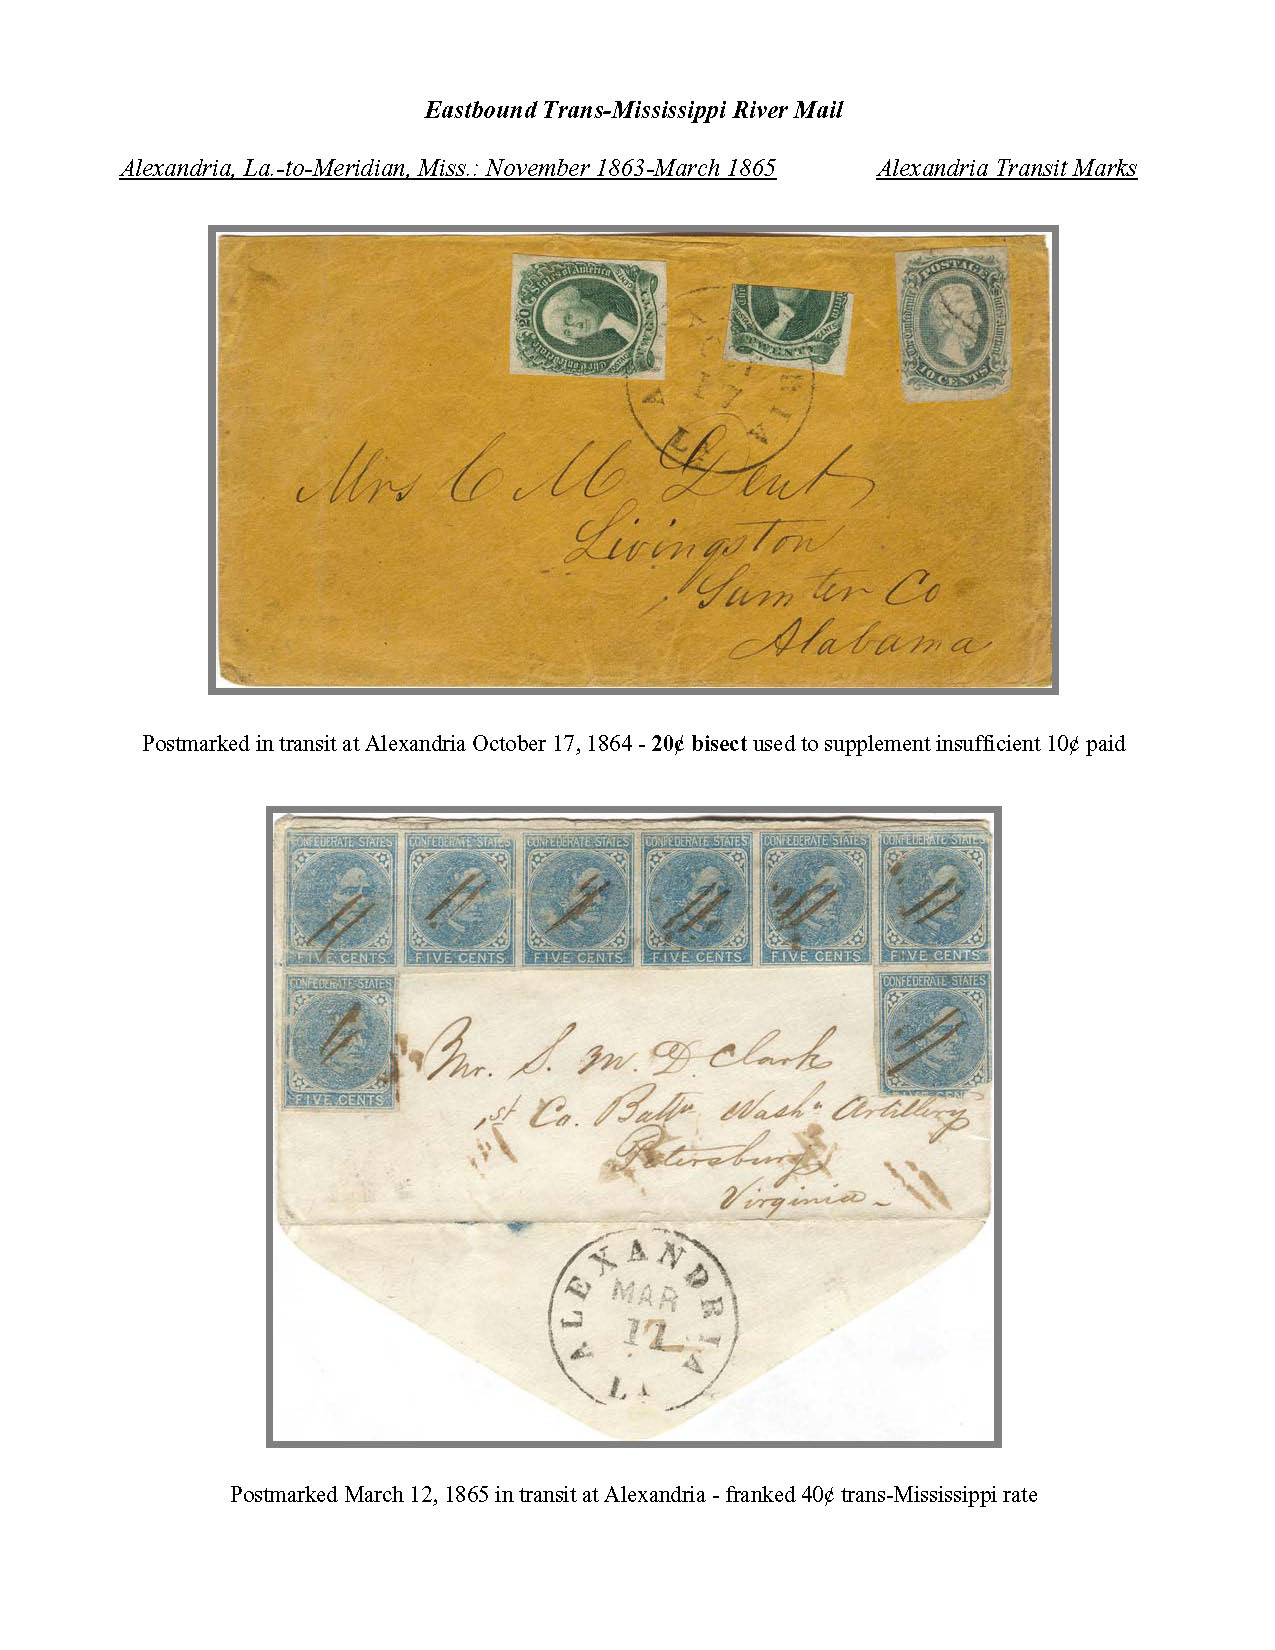 Eastbound Trans-Mississippi River Mail
Alexandria, La.-to-Meridian, Miss.: November 1863-March 1865 Alexandria Transit Marks
20
States of America
TWENTY
CENTS
POSTAGE
10 CENTS
LA
Mrs C M Dent
Livingston
Sumter Co
Alabama
Postmarked in transit at Alexandria October 17, 1864 - 20¢ bisect used to supplement insufficient 10¢ paid
CONFEDERATE STATES CONFEDERATE STATES CONFEDERATE STATES CONFEDERATE STATES CONFEDERATE STATES CONFEDERATE STATES
FIVE CENTS FIVE CENTS FIVE CENTS FIVE CENTS FIVE CENTS FIVE CENTS
CONFEDERATE STATES CONFEDERATE STATES
FIVE CENTS
Mr. S. M. D. Clark
1st Co. Battn Washn Artillery
Petersburg
Virginia
ALEXANDRIA
MAR
LA
Postmarked March 12, 1865 in transit at Alexandria - franked 40¢ trans-Mississippi rate